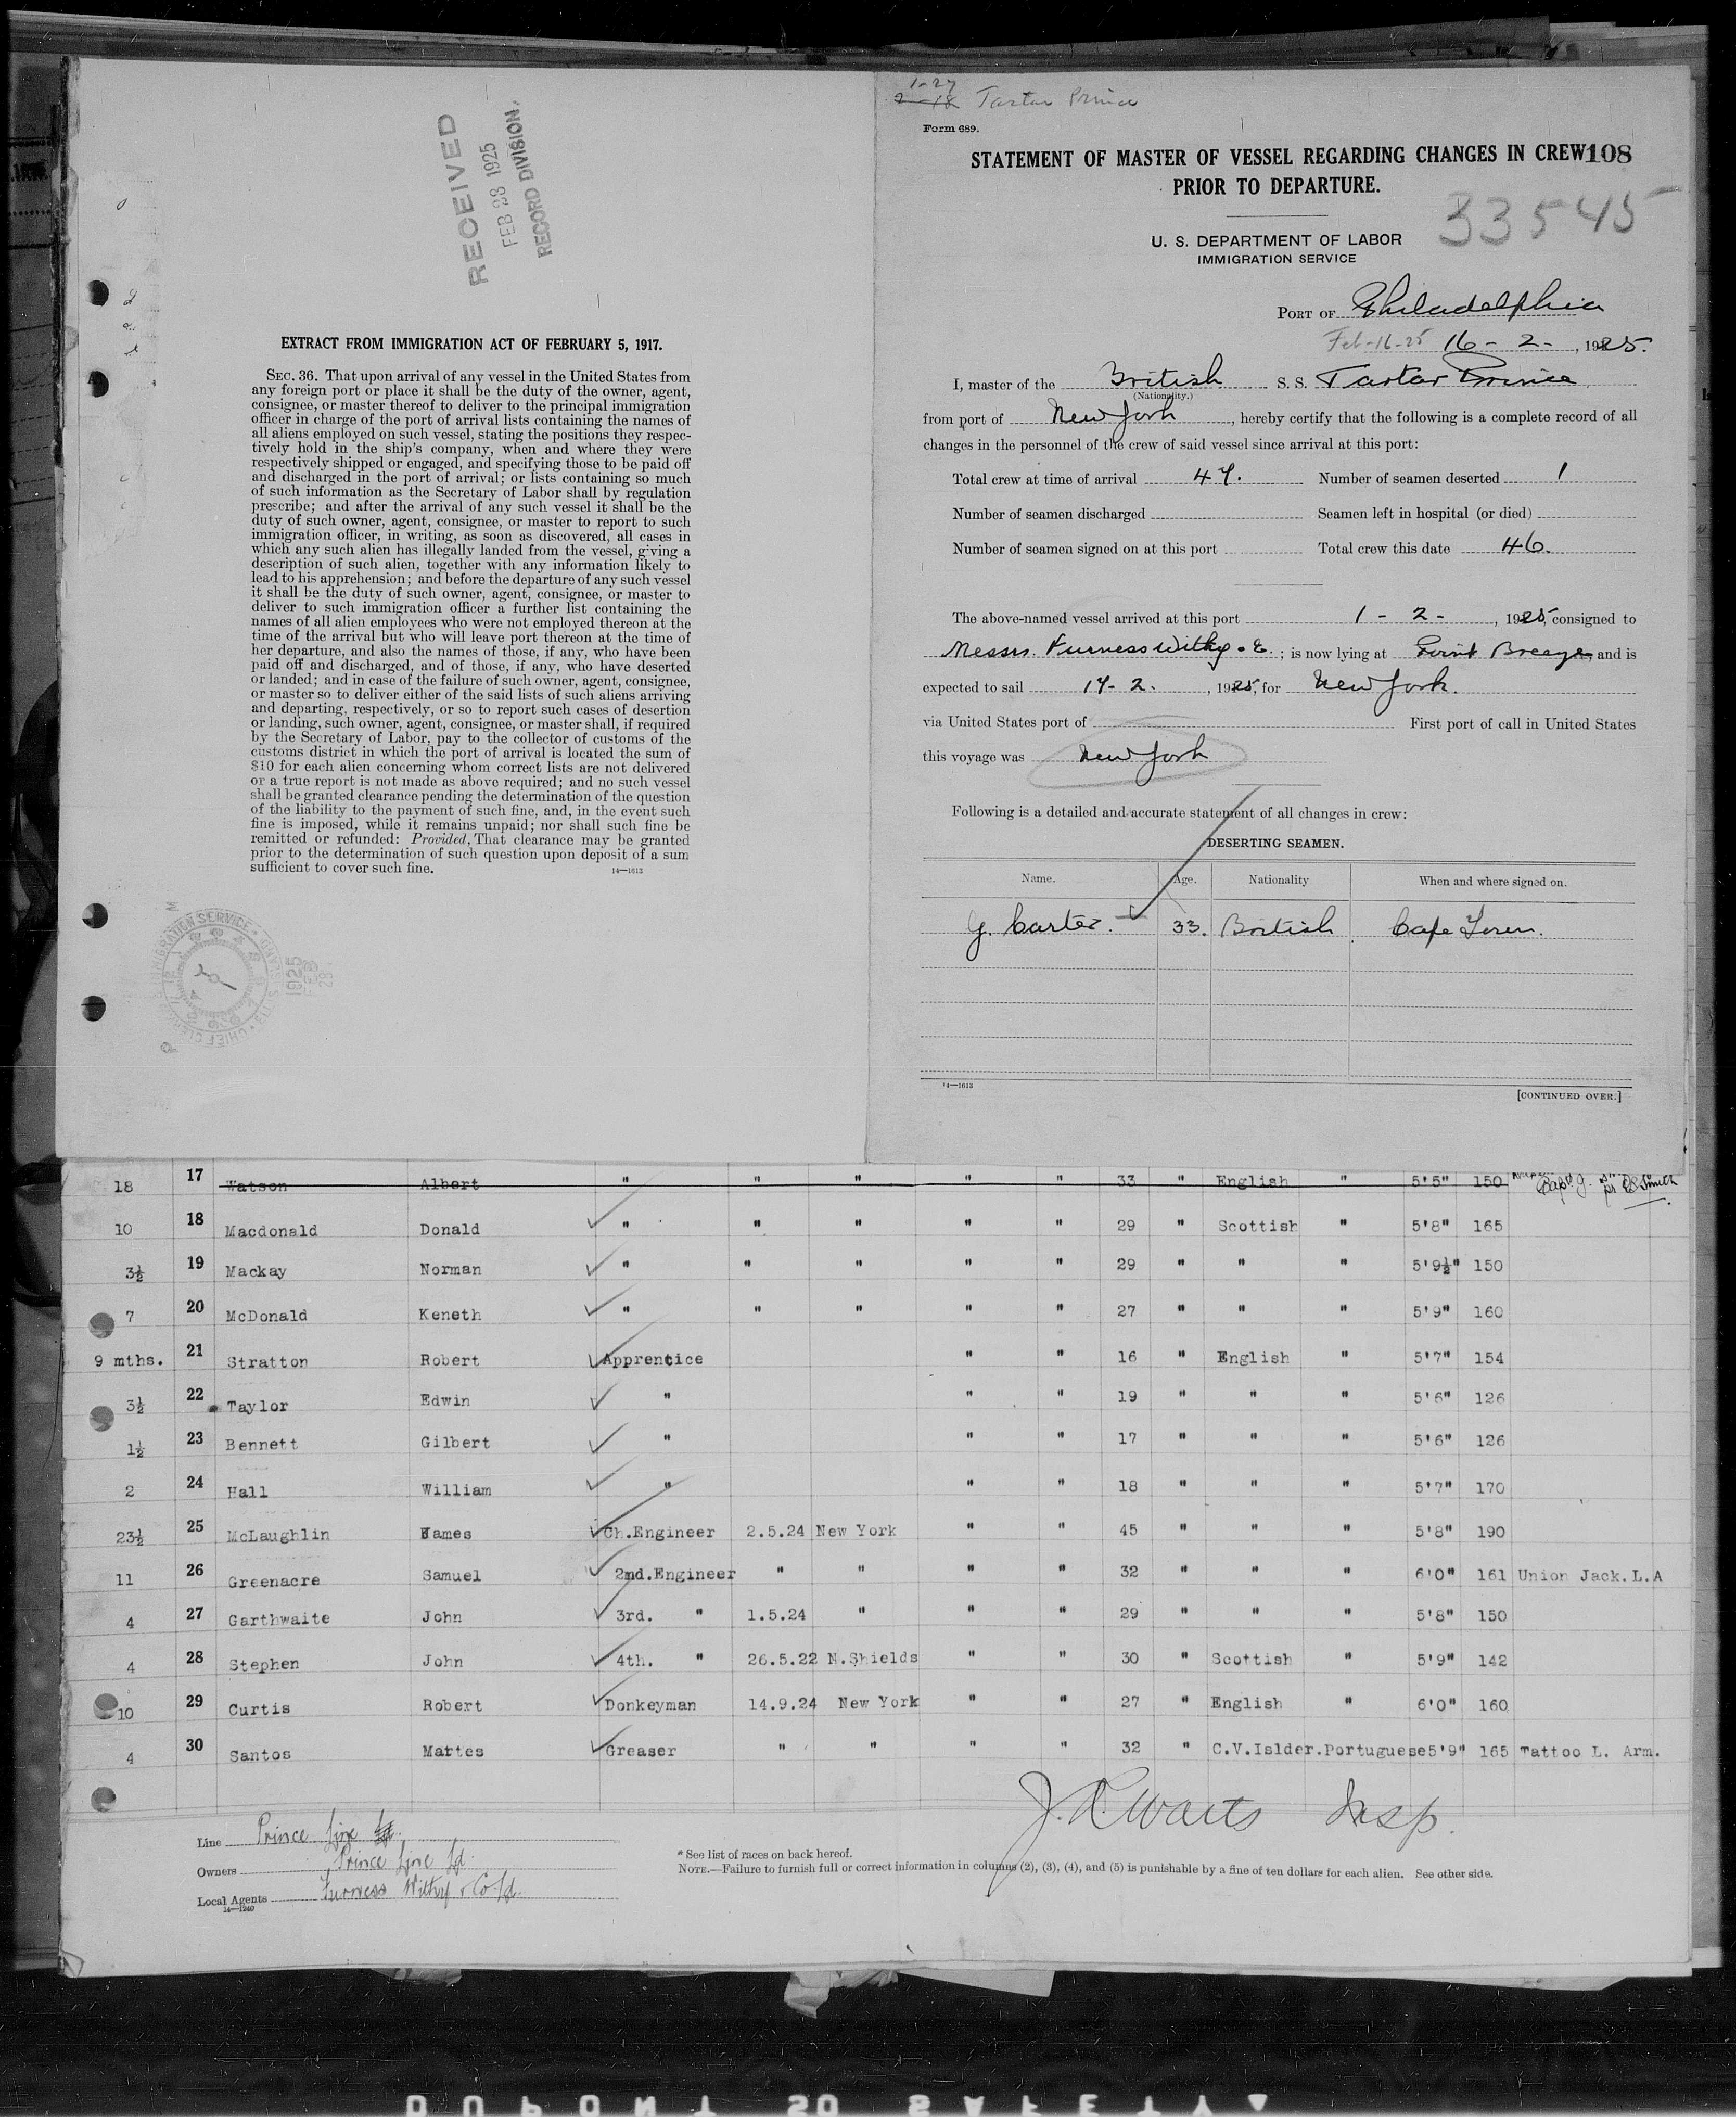 RECEIVED
FEB 28 1925
RECORD DIVISION.
EXTRACT FROM IMMIGRATION ACT OF FEBRUARY 5, 1917.
SEC. 36. That upon arrival of any vessel in the United States from
any foreign port or place it shall be the duty of the owner, agent,
consignee, or master thereof to deliver to the principal immigration
officer in charge of the port of arrival lists containing the names of
all aliens employed on such vessel, stating the positions they respec-
tively hold in the ship's company, when and where they were
respectively shipped or engaged, and specifying those to be paid off
and discharged in the port of arrival; or lists containing so much
of such information as the Secretary of Labor shall by regulation
prescribe; and after the arrival of any such vessel it shall be the
duty of such owner, agent, consignee, or master to report to such
immigration officer, in writing, as soon as discovered, all cases in
which any such alien has illegally landed from the vessel, giving a
description of such alien, together with any information likely to
lead to his apprehension; and before the departure of any such vessel
it shall be the duty of such owner, agent, consignee, or master to
deliver to such immigration officer a further list containing the
names of all alien employees who were not employed thereon at the
time of the arrival but who will leave port thereon at the time of
her departure, and also the names of those, if any, who have been
paid off and discharged, and of those, if any, who have deserted
or landed; and in case of the failure of such owner, agent, consignee,
or master so to deliver either of the said lists of such aliens arriving
and departing, respectively, or so to report such cases of desertion
or landing, such owner, agent, consignee, or master shall, if required
by the Secretary of Labor, pay to the collector of customs of the
customs district in which the port of arrival is located the sum of
$10 for each alien concerning whom correct lists are not delivered
or a true report is not made as above required; and no such vessel
shall be granted clearance pending the determination of the question
of the liability to the payment of such fine, and, in the event such
fine is imposed, while it remains unpaid; nor shall such fine be
remitted or refunded: Provided, That clearance may be granted
prior to the determination of such question upon deposit of a sum
sufficient to cover such fine.
14—1613
1-27
2-18 Tartar Prince
Form 689.
STATEMENT OF MASTER OF VESSEL REGARDING CHANGES IN CREW 108
PRIOR TO DEPARTURE.
33545
U. S. DEPARTMENT OF LABOR
IMMIGRATION SERVICE
PORT OF Philadelphia
Feb-16-25 16-2-, 1925.
I, master of the British S. S. Tartar Prince,
(Nationality.)
from port of New York, hereby certify that the following is a complete record of all
changes in the personnel of the crew of said vessel since arrival at this port:
Total crew at time of arrival 47. Number of seamen deserted 1
Number of seamen discharged Seamen left in hospital (or died)
Number of seamen signed on at this port Total crew this date 46.
The above-named vessel arrived at this port 1-2-, 1925, consigned to
Messrs. Furness Withy & Co.; is now lying at Point Breeze, and is
expected to sail 17-2., 1925, for New York.
via United States port of First port of call in United States
this voyage was New York
Following is a detailed and accurate statement of all changes in crew:
DESERTING SEAMEN.
Name. Age. Nationality When and where signed on.
G. Carter. 33. British. Cape Town.
14—1613
[CONTINUED OVER.]
18 17 Watson Albert " " " " " 33 " English " 5'5" 150
10 18 Macdonald Donald " " " " " 29 " Scottish " 5'8" 165
3½ 19 Mackay Norman " " " " " 29 " " " 5'9½" 150
7 20 McDonald Keneth " " " " " 27 " " " 5'9" 160
9 mths. 21 Stratton Robert Apprentice " " 16 " English " 5'7" 154
3½ 22 Taylor Edwin " " " 19 " " " 5'6" 126
1½ 23 Bennett Gilbert " " " 17 " " " 5'6" 126
2 24 Hall William " " " 18 " " " 5'7" 170
23½ 25 McLaughlin James Ch.Engineer 2.5.24 New York " " 45 " " " 5'8" 190
11 26 Greenacre Samuel 2nd.Engineer " " " " 32 " " " 6'0" 161 Union Jack.L.A
4 27 Garthwaite John 3rd. " 1.5.24 " " " 29 " " " 5'8" 150
4 28 Stephen John 4th. " 26.5.22 N.Shields " " 30 " Scottish " 5'9" 142
10 29 Curtis Robert Donkeyman 14.9.24 New York " " 27 " English " 6'0" 160
4 30 Santos Mattes Greaser " " " " 32 " C.V.Islder.Portuguese 5'9" 165 Tattoo L. Arm.
J. R. Warts Insp.
Line Prince Line Ld.
Owners Prince Line Ld.
Local Agents Furness Withy & Co Ld.
14—1240
* See list of races on back hereof.
NOTE.—Failure to furnish full or correct information in columns (2), (3), (4), and (5) is punishable by a fine of ten dollars for each alien. See other side.